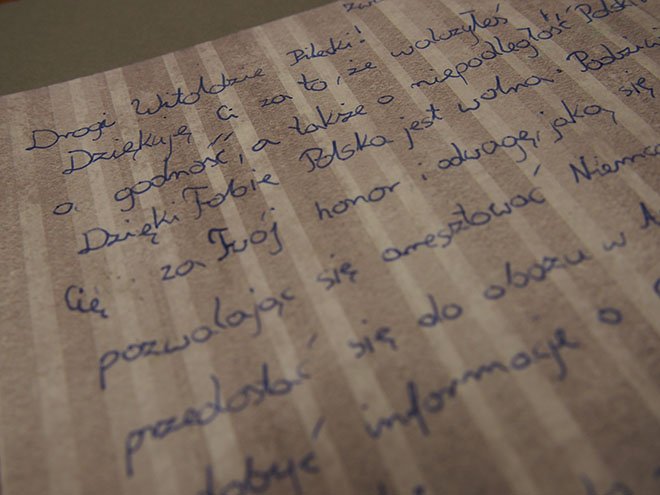 Drogi Witoldzie Pilecki!
Dziękuję Ci za to, że walczyłeś
o godność, a także o niepodległość Polski
Dzięki Tobie Polska jest wolna.
Cię za Twój honor i odwagę, jaką się
pozwalając się aresztować
przedostać się do obozu w
informacje o